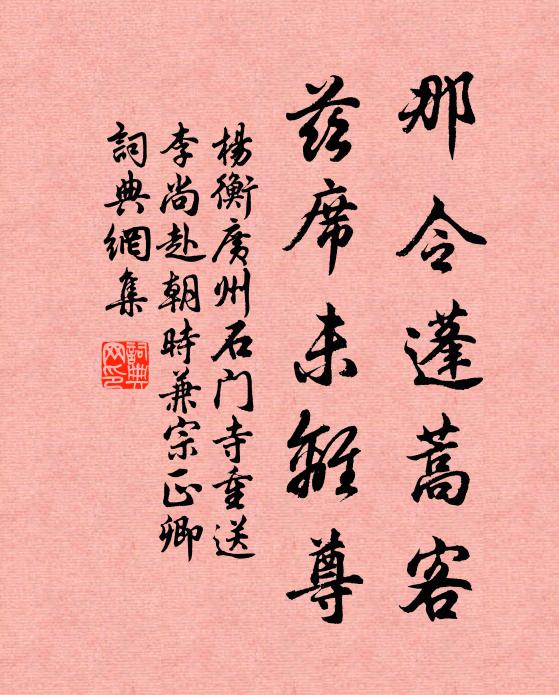 那令蓬蒿客
茲席未離尊
楊衡廣州石门寺重送
李尚赴朝時兼宗正卿
詞典網集
詞典
网印